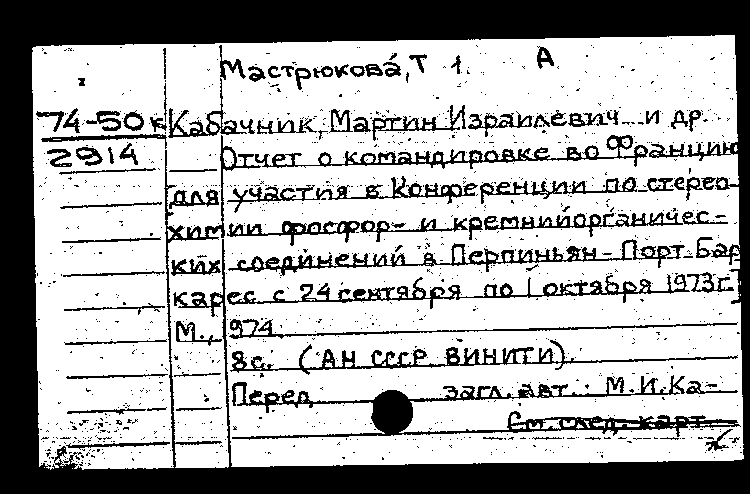 Мастрюкова, Т 1. А
74-50к Кабачник, Мартин Израилевич и др.
2914 Отчет о командировке во Францию
[для участия в Конференции по стерео-
химии фосфор- и кремнийорганичес-
ких соединений в Перпиньян-Порт Бар
карес с 24 сентября по 1 октября 1973г.]
М., 974.
8с. (АН СССР. ВИНИТИ).
Перед загл. авт.: М.И.Ка-
См. след. карт.